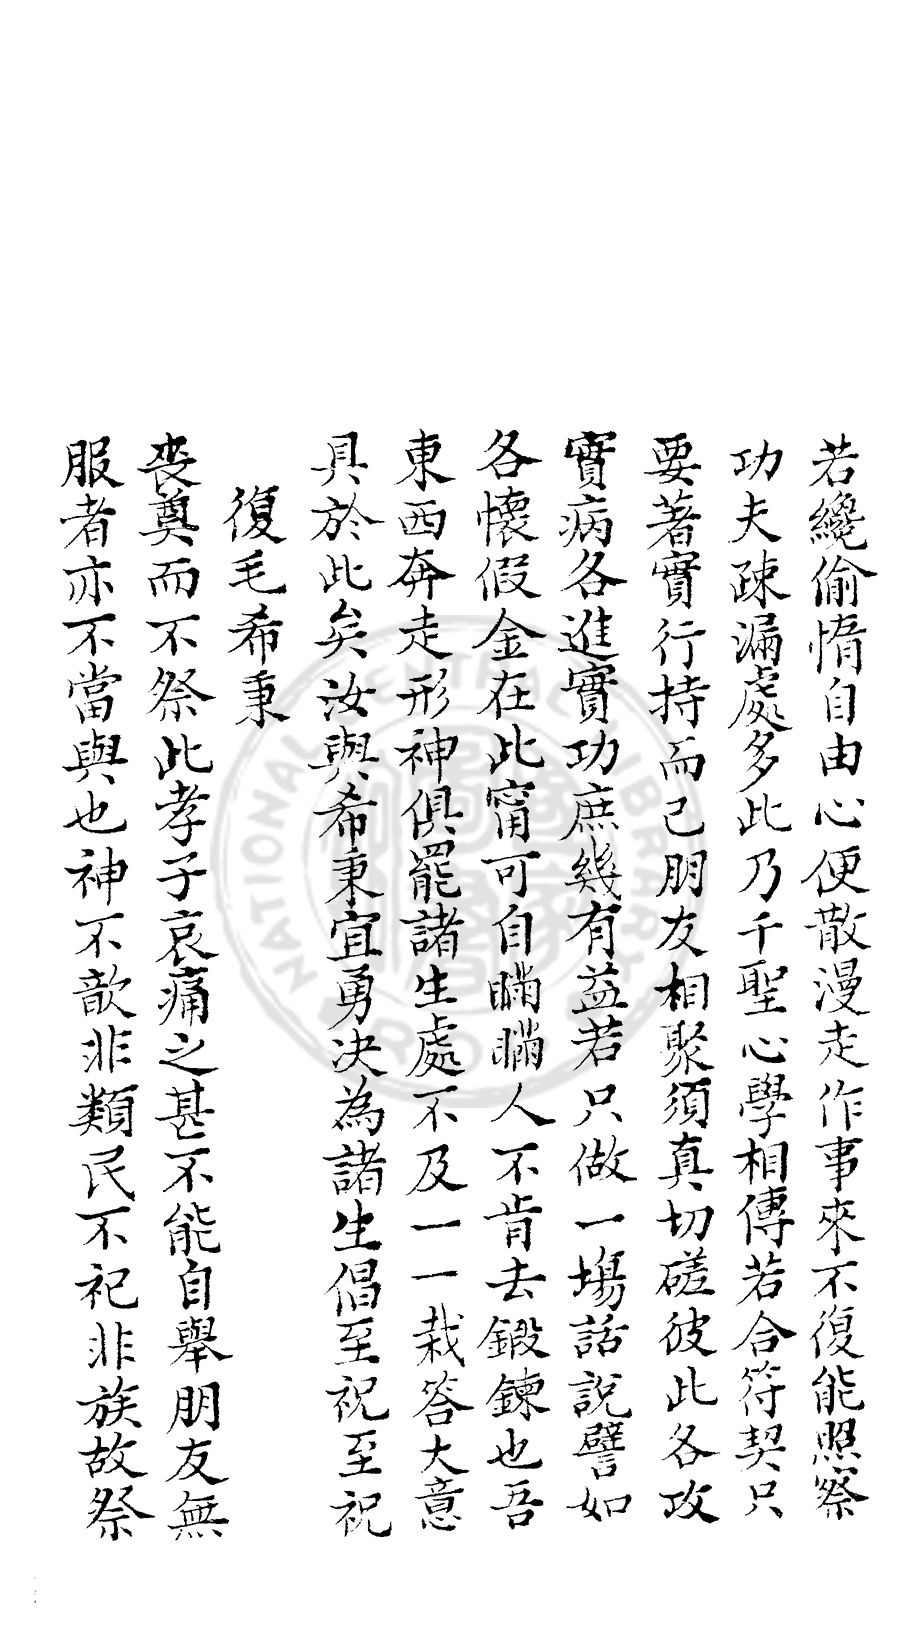 若纔偷惰自由心便散漫走作事來不復能照察
功夫疎漏處多此乃千聖心學相傳若合符契只
要著實行持而已朋友相聚須真切磋彼此各攻
實病各進實功庶幾有益若只做一場話說譬如
各懷假金在此甯可自瞞瞞人不肯去鍛鍊也吾
東西奔走形神俱罷諸生處不及一一裁答大意
具於此矣汝與希秉宜勇决為諸生倡至祝至祝
復毛希秉
喪奠而不祭此孝子哀痛之甚不能自舉朋友無
服者亦不當與也神不歆非類民不祀非族故祭
NATIONAL CENTRAL LIBRARY